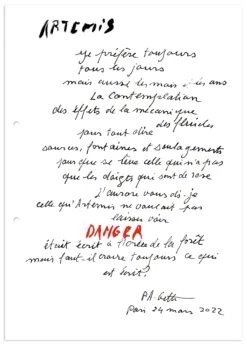 ARTEMIS
je préfère toujours
tous les jours
mais aussi les mois et les ans
La contemplation
des effets de la mécanique
des fluides
pour tout dire
sources, fontaines et soulagements
pour que se lève celle qui n'a pas
que les doigts qui sont de rose
L'aurore vous dis-je
celle qu'Artémis ne voulait pas
laisser voir
DANGER
était écrit à l'orée de la forêt
mais faut-il croire toujours ce qui
est écrit?
P.A. Gette
Paris 24 mars 2022